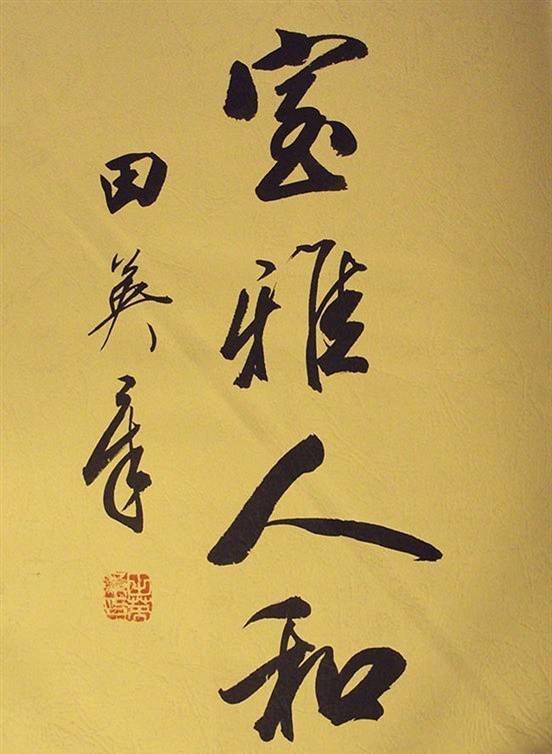 室雅人和
田英章